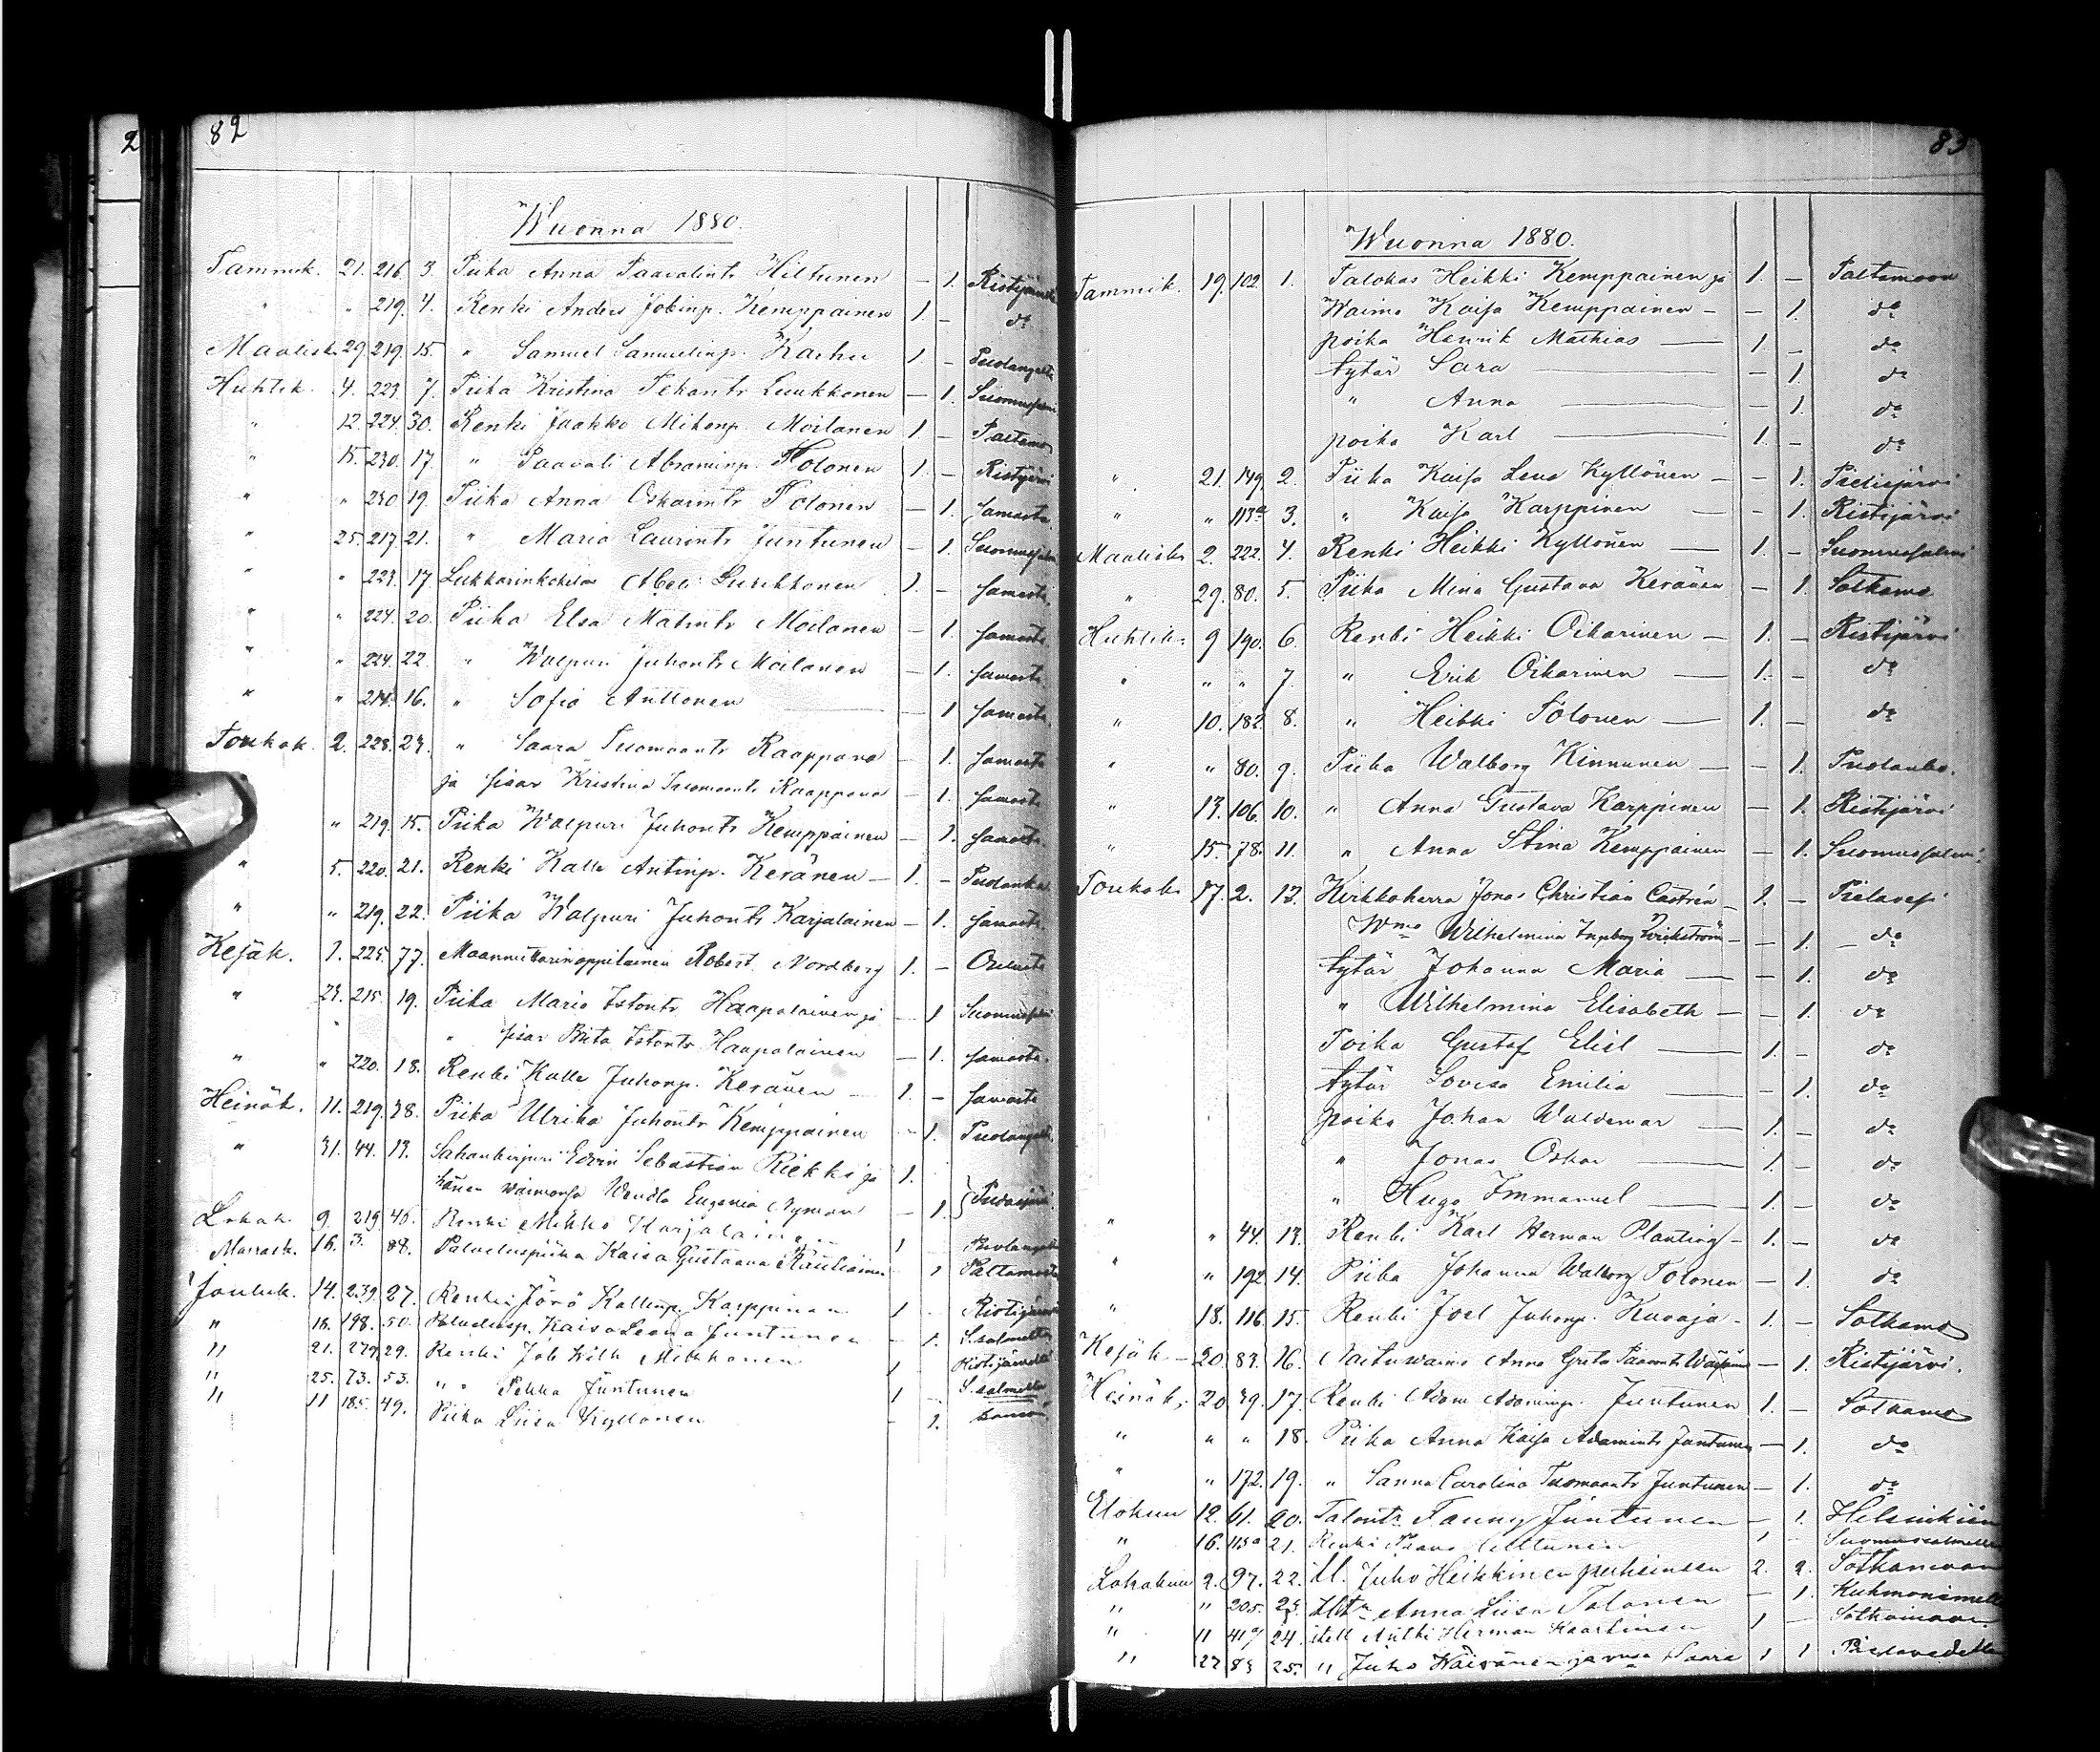 2
82
Wuonna 1880.
Tammik. 21. 216. 3. Piika Anna Paavalintr Hiltunen — 1. Ristijärvi
" " 219. 4. Renki Anders Jobinp. Kemppainen 1. — do
Maalisk. 29. 219. 15. " Samuel Samuelinp. Karhu 1. — Puolangalta
Huhtik. 4. 223. 7. Piika Kristina Pekantr Luukkonen — 1. Suomussalmi
" 12. 224. 30. Renki Jaakko Mikonp. Moilanen 1. — Paltamo
" 15. 230. 17. " Paavali Abraminp. Tolonen 1. — Ristijärvi
" " 230 19. Piika Anna Oskarintr Tolonen — 1. Samasta.
" 25. 217. 21. " Maria Laurintr Juntunen — 1. Suomussalmi
" " 223. 17. Lukkarinkokelas Abel Luukkonen 1. — Samasta.
" " 224. 20. Piika Elsa Matintr Moilanen — 1. Samasta.
" " 224. 22. " Walpuri Juhontr Moilanen — 1. Samasta.
" " 214. 16. " Sofia Anttonen — 1 Samasta.
Toukok. 2. 228. 23. " Saara Tuomaantr Raappana — 1. Samasta
ja sisar Kristina Tuomaantr Raappana — 1. Samasta
" 219. 15. Piika Walpuri Juhontr Kemppainen — 1. Samasta
" 5. 220. 21. Renki Kalle Antinp. Keränen — 1. — Puolanka
" " 219. 22. Piika Walpuri Juhontr Karjalainen — 1. Samasta.
Kesäk. 1. 225. 77. Maanmittarinoppilainen Robert Nordberg 1. — Oulusta
" 23. 215. 19. Piika Maria Istontr Haapalainen ja — 1 Suomussalmi
" " sisar Brita Istontr Haapalainen — 1. Samasta.
" " 220. 18. Renki Kalle Juhonp. Keränen 1. — Samasta
Heinäk. 11. 219. 38. Piika Ulrika Juhontr Kemppainen — 1. Puolangalta
" 31. 44. 13. Sahankirjuri Edvin Sebastian Riekki ja 1.
hänen waimonsa Wendla Eugenia Nyman — 1. Pudasjärvi
Lokak. 9. 219. 46. Renki Mikko Karjalainen 1 Puolangalta
Marrask. 16. 3. 88. Palveluspiika Kaisa Gustaava Rautiainen 1 Paltamosta
Jouluk. 14. 239. 27. Renki Jörö Kallenp. Karppinen 1 — Ristijärveltä
" 18. 198. 50. Palveluksp. Kaisa Leena Juntunen — 1. S.salmelta
" 21. 279. 29. Renki Joh. Wilh. Mikkonen 1 Ristijärveltä
" 25. 73. 53. " " Pekka Juntunen 1 — S.salmelta
" 11 185. 49. Piika Liisa Kyllönen — 1.
83
Wuonna 1880.
Tammik. 19. 102. 1. Talokas Heikki Kemppainen ja 1. — Paltamoon
Waimo Kaisa Kemppainen — — 1. do
poika Henrik Mathias — 1. — do
tytär Sara — — 1. do
" Anna — — 1. do
poika Karl — 1. — do
" 21. 149. 2. Piika Kaisa Lena Kyllönen — — 1. Pielisjärvi
" " 113a 3. " Kaisa Karppinen — — 1. Ristijärvi
Maalisk. 2. 222. 4. Renki Heikki Kyllönen — 1. — Suomussalmi
" 29. 80. 5. Piika Mina Gustava Keränen — 1. Sotkamo
Huhtik. 9 190. 6. Renki Heikki Oikarinen — 1. — Ristijärvi
" " " 7. " Erik Oikarinen — 1. — do
" 10. 182. 8. " Heikki Tolonen — 1. — do
" " 80. 9. Piika Walborg Kinnunen — — 1. Puolanka.
" 13. 106. 10. " Anna Gustava Karppinen — 1. Ristijärvi
" 15. 78. 11. " Anna Stina Kemppainen — 1. Suomussalmi
Toukok. 17. 2. 12. Kirkkoherra Jonas Christian Castrén — 1. — Pielavesi
Wmo Wilhelmina Ingeborg Wickström — — 1. — do
tytär Johanna Maria — — 1. do
" Wilhelmina Elisabeth — — 1. do
Poika Gustaf Eliel — 1. — do
tytär Lovisa Emilia — 1. do
poika Johan Waldemar — 1. — do
" Jonas Oskar — 1. — do
" Hugo Immanuel — 1. — do
" " 44. 13. Renki Karl Herman Planting — 1. — do
" " 192. 14. Piika Johanna Walborg Tolonen — 1. do
" 18. 116. 15. Renki Joel Juhonp. Kuvaja — 1. — Sotkamo
Kesäk. — 20. 83. 16. Naitu waimo Anna Greta Paavontr — 1. Ristijärvi.
Heinäk. 20 39. 17. Renki Adam Adaminp. Juntunen 1. — Sotkamo
" " " 18. Piika Anna Kaisa Adamintr Juntunen — 1. do
" " 172. 19. " Sanna Carolina Tuomaantr Juntunen — 1. do
Elokuu 12. 61. 20. Talontr Fanny Juntunen — 1. Helsinkiin
" 16. 113a 21. Renki Paavo Hiltunen 1 — Suomussalmelle
Lokakuu 2. 97. 22. Juho Heikkinen perheineen 2. 2. Sotkamoon
" " 205. 23. Anna Liisa Tolonen — 1. Kuhmoniemelle
" 11 24. itell Antti Herman Kaartinen 1 — Sotkamoon
" 27 83 25. " Juho Wäisänen ja vmsa Saara 1 1 Pielavedelle